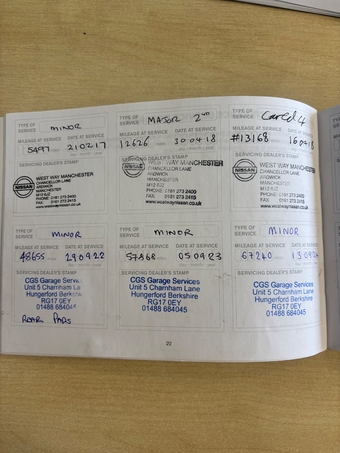 TYPE OF SERVICE MINOR
MILEAGE AT SERVICE DATE AT SERVICE
5497 210217
SERVICING DEALER'S STAMP
NISSAN
WEST WAY MANCHESTER
CHANCELLOR LANE
ARDWICK
MANCHESTER
M12 6JZ
PHONE 0161 273 2400
FAX
www.westwaynissan.co.uk
TYPE OF SERVICE MAJOR 2ND
MILEAGE AT SERVICE DATE AT SERVICE
12626 300418
SERVICING DEALER'S STAMP
NISSAN
WEST WAY MANCHESTER
CHANCELLOR LANE
ARDWICK
MANCHESTER
M12 6JZ
PHONE 0161 273 2400
FAX
www.westwaynissan.co.uk
TYPE OF SERVICE
MILEAGE AT SERVICE DATE AT SERVICE
13168
SERVICING DEALER'S STAMP
NISSAN
WEST WAY MANCHESTER
CHANCELLOR LANE
ARDWICK
MANCHESTER
M12 6JZ
PHONE 0161 273 2400
FAX
www.westwaynissan.co.uk
TYPE OF SERVICE MINOR
MILEAGE AT SERVICE DATE AT SERVICE
48655 290922
SERVICING DEALER'S STAMP
CGS Garage Serv
Unit 5 Charnham La
Hungerford Berksh
RG17 0EY
01488 684045
REAR PADS
TYPE OF SERVICE MINOR
MILEAGE AT SERVICE DATE AT SERVICE
57868 050923
SERVICING DEALER'S STAMP
CGS Garage Services
Unit 5 Charnham Lane
Hungerford Berkshire
RG17 0EY
01488 684045
TYPE OF SERVICE MINOR
MILEAGE AT SERVICE DATE AT SERVICE
67240
SERVICING DEALER'S STAMP
CGS Garage Services
Unit 5 Charnham Lane
Hungerford Berkshire
RG17 0EY
01488 684045
22